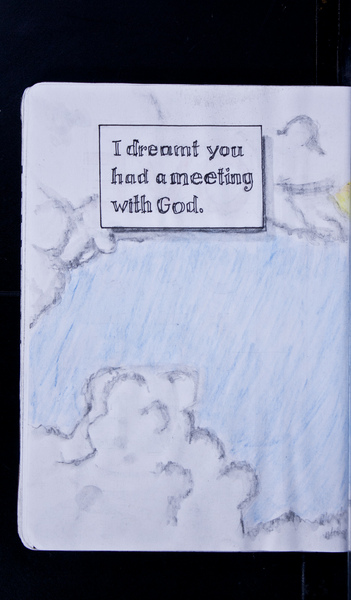 I dreamt you
had a meeting
with God.